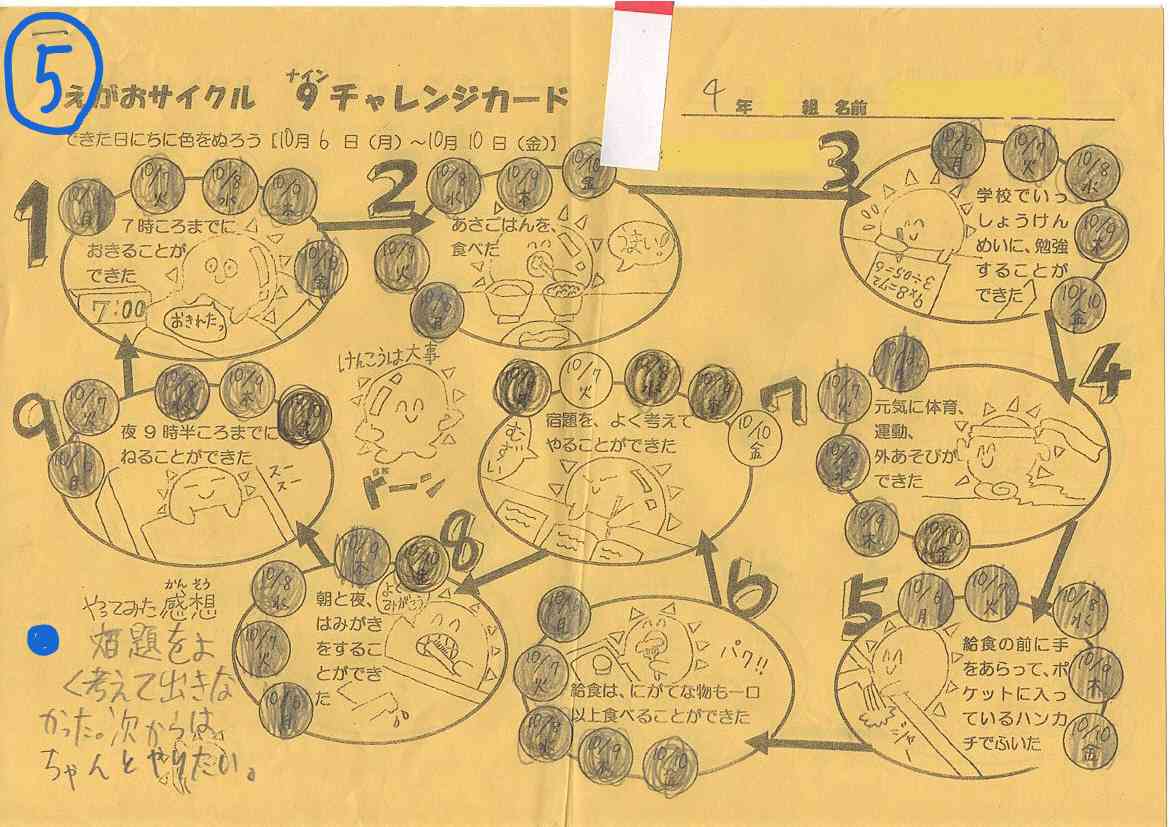 一
5
ナイン
えがおサイクル 9チャレンジカード
4年 組 名前
できた日にちに色をぬろう【10月6日(月)~10月10日(金)】
1
10/7 火
10/8 水
木
月
金
7時ころまでに
おきることが
できた
7:00
おきれたっ
2
10/8 水
10/9 木
10/10 金
10/7 火
月
あさごはんを、
食べた
うまい!
3
10/6 月
10/7 火
10/8 水
10/9 木
10/10 金
学校でいっ
しょうけん
めいに、勉強
することが
できた
9×8=72
3÷0.5=6
4
10/7 火
10/9 木
10/10 金
元気に体育、
運動、
外あそびが
できた
5
10/6 月
10/7 火
10/8 水
10/9 木
10/10 金
給食の前に手
をあらって、ポ
ケットに入っ
ているハンカ
チでふいた
ジャー
6
月
10/7 火
10/8 水
10/9 木
10/10 金
パク!!
給食は、にがてな物も一口
以上食べることができた
7
10/7 火
10/10 金
宿題を、よく考えて
やることができた
むずい
8
10/9 木
10/10 金
10/8 水
10/7 火
10/6 月
朝と夜、
はみがき
をするこ
とができ
た
よく
みがこう
9
10/7 火
10/8 水
10/9 木
10/10 金
10/6 月
夜9時半ころまでに
ねることができた
スー
スー
けんこうは大事
ドーン
かんそう
やってみた感想
宿題をよ
く考えて出きな
かった。次からは、
ちゃんとやりたい。